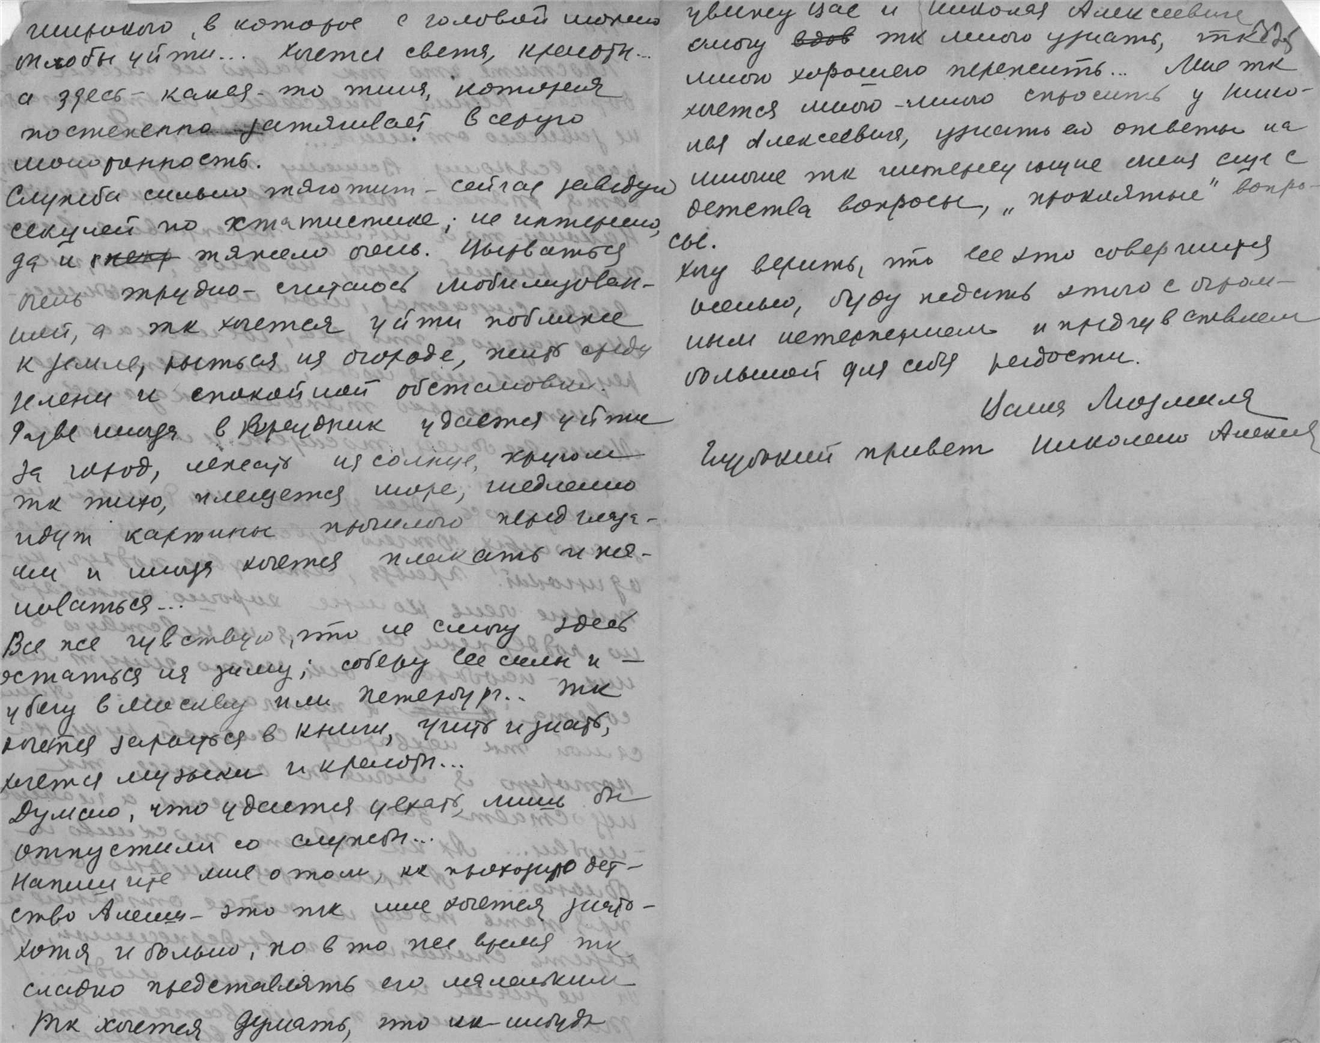 широкого, в которое с головой можно
было бы уйти... хочется света, красоты...
а здесь - какая-то тина, которая
постепенно затягивает в серую
монотонность.
Служба сильно тяготит - сейчас заведую
секцией по статистике; не интересно,
да и тяжело очень. Вырваться
очень трудно - считаюсь мобилизован-
ной, а тк хочется уйти поближе
к земле, рыться на огороде, жить среди
зелени и спокойной обстановки.
Разве иногда в праздник удается уйти
за город, лежать на солнце, кругом
тк тихо, плещется море, медленно
идут картины прошлого перед глаза-
ми и иногда хочется плакать и жа-
ловаться...
Все же чувствую, что не смогу здесь
остаться на зиму; соберу все силы и -
убегу в Москву или Петербург.. тк
хочется зарыться в книги, учить и знать,
хочется музыки и красоты...
Думаю, что удастся уехать, лишь бы
отпустили со службы...
Напишите мне о том, кк проходило дет-
ство Алеши - это тк мне хочется знать -
хотя и больно, но в то же время тк
сладко представлять его маленьким
тк хочется думать, что кк-нибудь
увижу Вас и Николая Алексеевича
смогу тк много узнать, тк
много хорошего пережить... Мне тк
хочется много-много спросить у Нико-
лая Алексеевича, узнать его ответы на
многие тк интересующие меня еще с
детства вопросы, „проклятые" вопро-
сы.
Хочу верить, что все это совершится
осенью, буду ждать этого с огром-
ным нетерпением и предчувствием
большой для себя радости.
Ваша Людмила
Глубокий привет Николаю Алексе